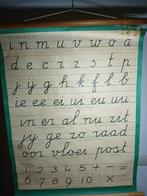 i n m u v w o a
d e c r z s t p
j ij g h k f l b
ie ee ei ui eu uu
in er al nu zit
jij ge zo raad
oor vloer post
1 2 3 4 5 +
6 7 8 9 10 ×